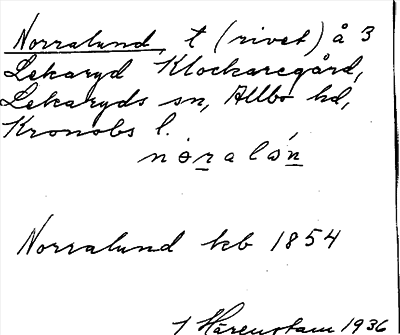 Norralund, t (rivet) å 3
Lekaryd Klockaregård,
Lekaryds sn, Allbo hd,
Kronobs l.
noralón
Norralund kb 1854
1 Härenstam 1936